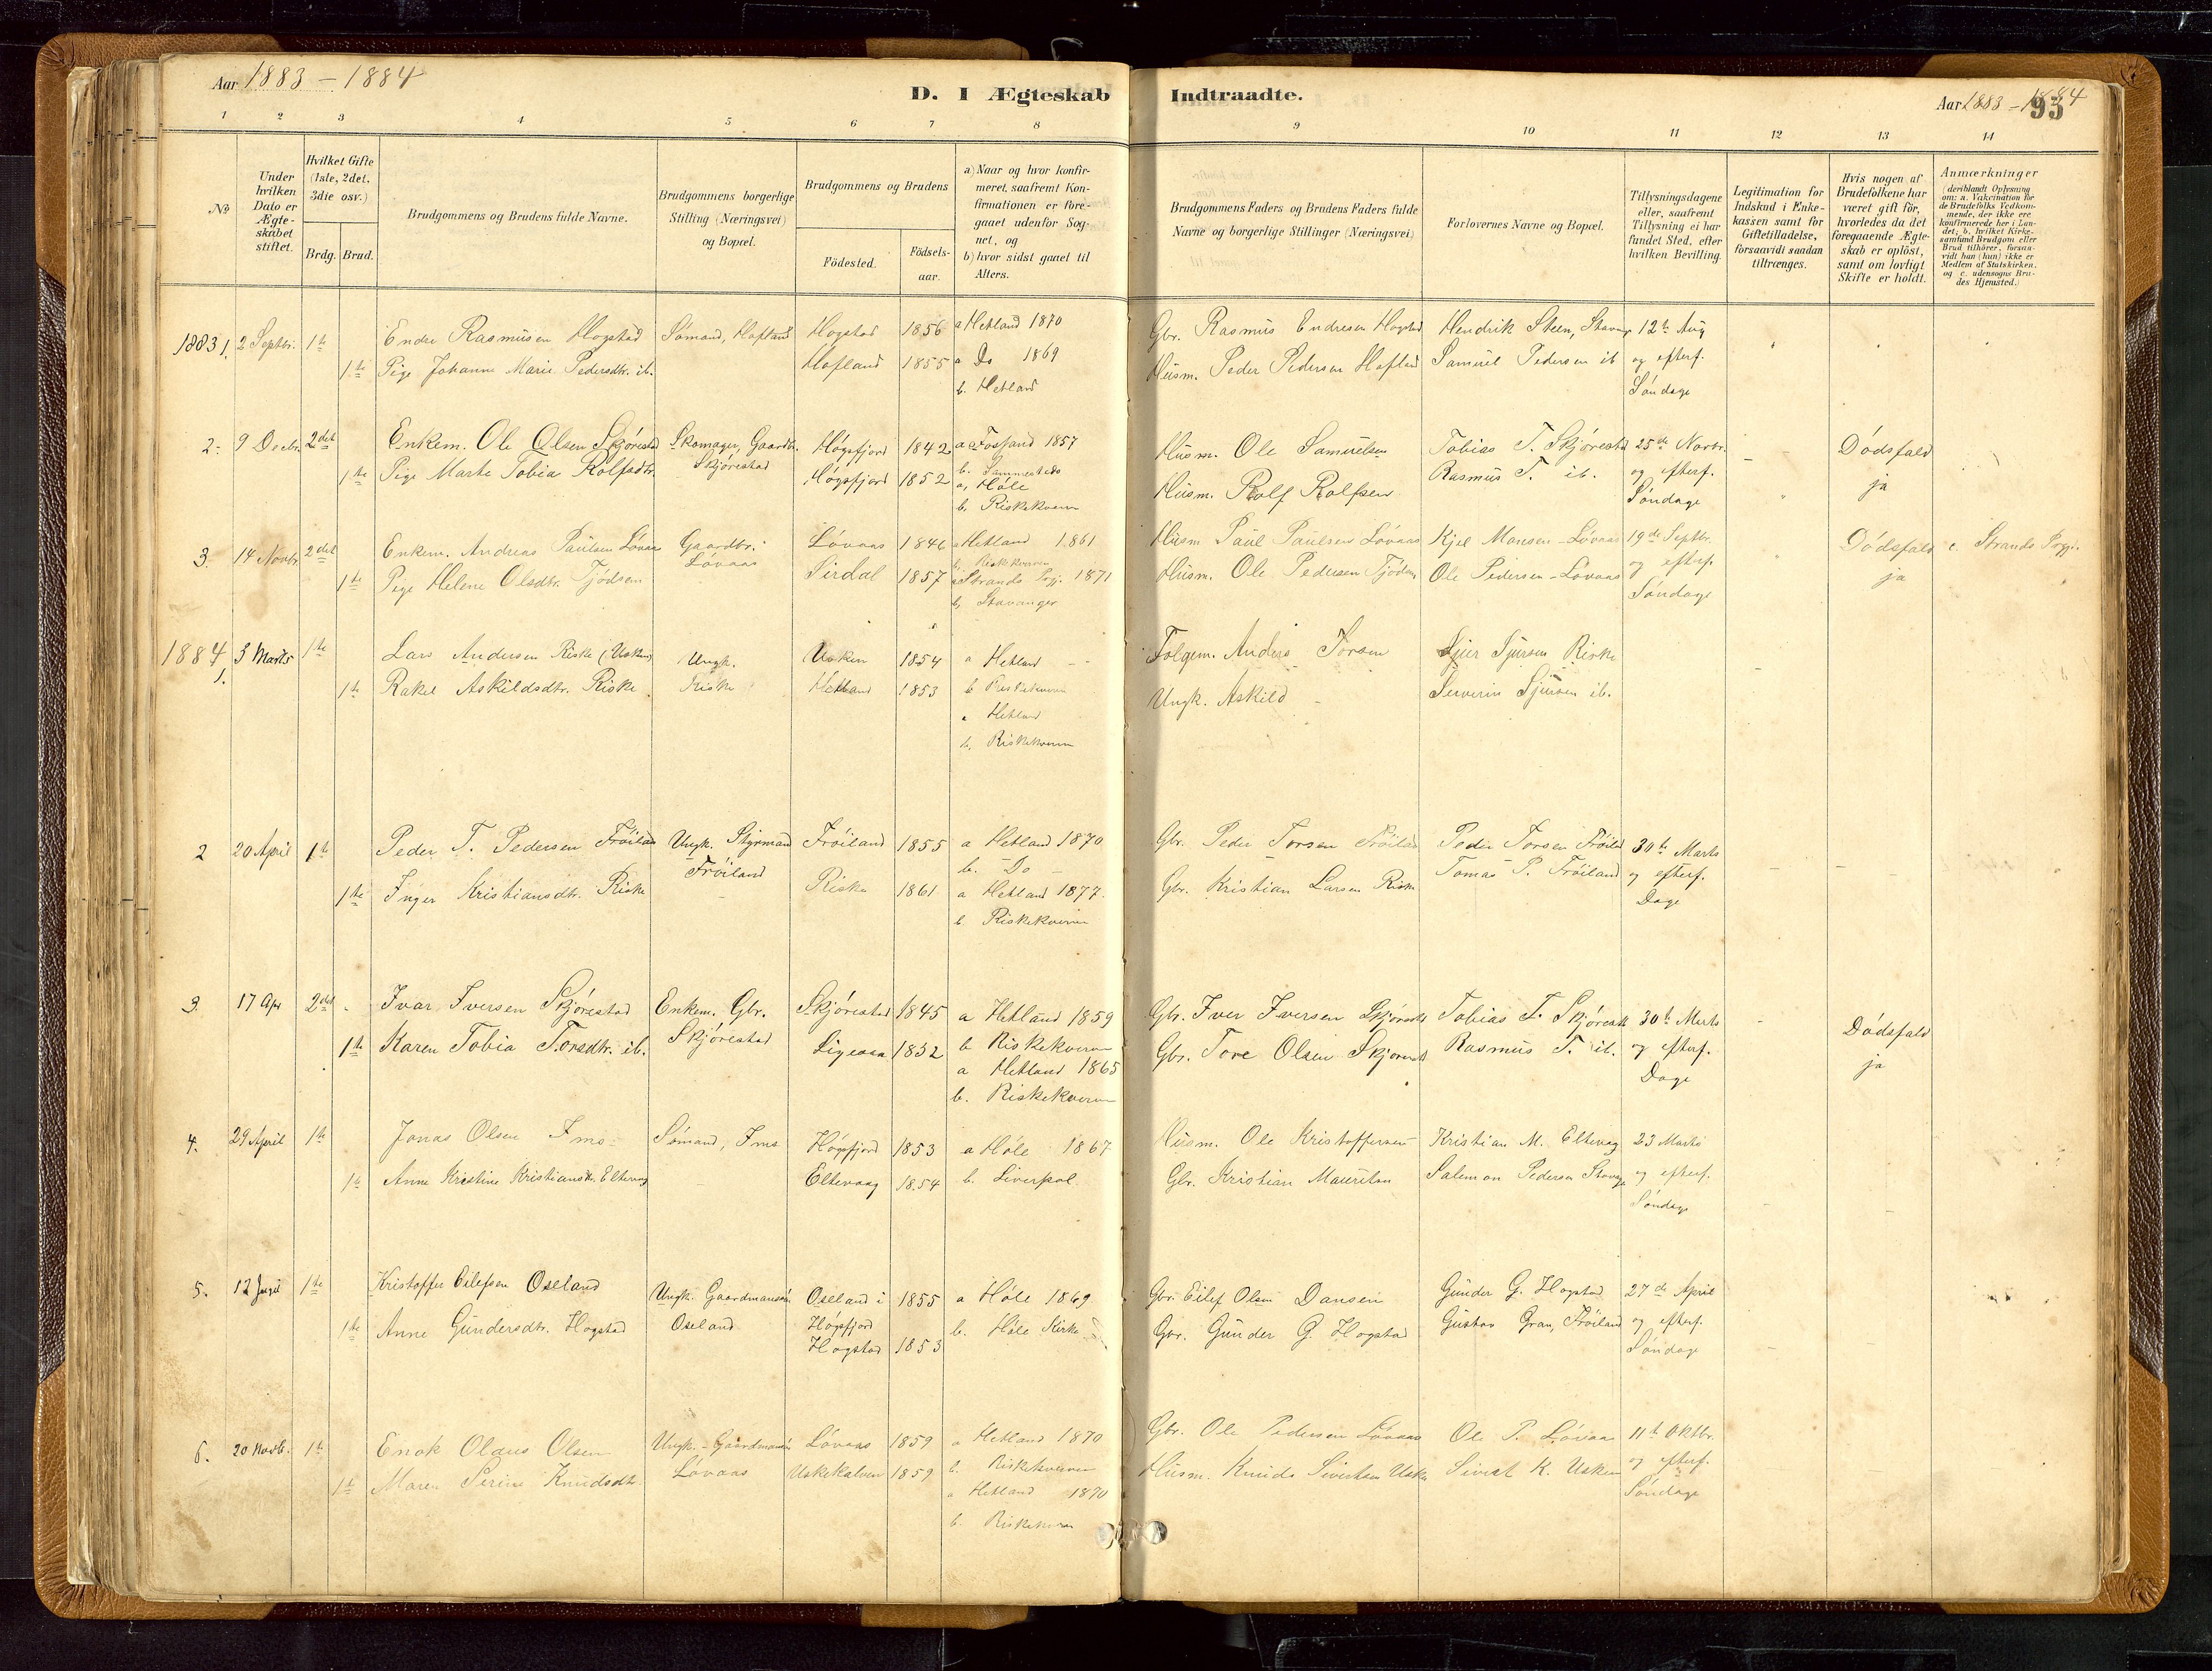 Aar 1883 – 1884
D. I Ægteskab Indtraadte.
Aar 1883 – 1884
93
1 2 3 4 5 6 7 8 9 10 11 12 13 14
No
Under hvilken Dato er Ægteskabet stiftet.
Hvilket Gifte (1ste, 2det, 3die osv.)
Brdg. Brud.
Brudgommens og Brudens fulde Navne.
Brudgommens borgerlige Stilling (Næringsvei) og Bopæl.
Brudgommens og Brudens
Födested.
Födselsaar.
a) Naar og hvor konfirmeret, saafremt Konfirmationen er foregaaet udenfor Sognet, og
b) hvor sidst gaaet til Alters.
Brudgommens Faders og Brudens Faders fulde Navne og borgerlige Stillinger (Næringsvei)
Forlovernes Navne og Bopæl.
Tillysningsdagene eller, saafremt Tillysning ei har fundet Sted, efter hvilken Bevilling.
Legitimation for Indskud i Enkekassen samt for Giftetilladelse, forsaavidt saadan tiltrænges.
Hvis nogen af Brudefolkene har været gift för, hvorledes da det foregaaende Ægteskab er oplöst, samt om lovligt Skifte er holdt.
Anmærkninger
(deriblandt Oplysning om: a. Vakcination for de Brudefolks Vedkommende, der ikke ere konfirmerede her i Landet; b. hvilket Kirkesamfund Brudgom eller Brud tilhörer, forsaavidt han (hun) ikke er Medlem af Statskirken, og c. udensogns Brudes Hjemsted.)
1883 1. 2 Septbr. 1te Endre Rasmusen Hogstad Sømand, Hafland Hogstad 1856 a Hetland 1870 Gbr. Rasmus Endresen Hogstad Hendrik Steen, Stavanger 12te Aug
1te Pige Johanne Marie Pedersdtr. ib. Hafland 1855 a Do 1869 Husm. Peder Pedersen Hafland Samuel Pedersen ib og efterf.
b. Hetland Söndage
2. 9 Decbr. 2det Enkem. Ole Olsen Skjørestad Skomager, Gaardbr. Høgsfjord 1842 a Fossand 1857 Husm. Ole Samuelsen Tobias T. Skjørestad 25de Novbr. Dødsfald
1te Pige Marte Tobia Rolfsdtr. Skjørestad Høgsfjord 1852 b. Sammesteds Husm. Rolf Rolfsen Rasmus T. ib. og efterf. ja
a, Høle Söndage
b. Riskekvern
3. 14 Novbr. 2det Enkem. Andreas Paulsen Løvaas Gaardbr. Løvaas 1846 a Hetland 1861 Husm Paul Paulsen Løvaas Kjel Monsen – Løvaas 19de Septbr. Dødsfald c. Strands Prgj.
1te Pige Helene Olsdtr. Tjødsen Løvaas Sirdal 1857 b. Riskekvern Husm. Ole Pedersen Tjødsen Ole Pedersen – Løvaas og efterf. ja
a Strands Prgj. 1871 Söndage
b, Stavanger
1884 1. 3 Marts 1te Lars Andersen Riske (Usken) Ungk. Usken 1854 a Hetland Folgem. Anders Torsen Sjur Sjursen Riske
1te Rakel Askildsdtr. Riske Riske Hetland 1853 b Riskekvern Ungk. Askild Severin Sjursen ib.
a Hetland
b. Riskekvern
2 20 April 1te Peder T. Pedersen Frøiland Ungk. Styrmand Frøiland 1855 a Hetland 1870 Gbr. Peder Torsen Frøiland Peder Torsen Frøiland 30te Marts
Frøiland b. Do Tomas P. Frøiland og efterf.
1te Inger Kristiansdtr. Riske Riske 1861 a Hetland 1877. Gbr. Kristian Larsen Riske Dage
b Riskekvern
3. 17 Apr 2det Ivar Iversen Skjørestad Enkem. Gbr. Skjørestad 1845 a Hetland 1859 Gbr. Iver Iversen Skjørestad Tobias T. Skjørestad 30te Marts Dødsfald
1te Karen Tobia Torsdtr. ib. Skjørestad Ligeaaa 1852 b Riskekvern Gbr. Tore Olsen Skjørestad Rasmus T. ib. og efterf. ja
a Hetland 1865 Dage
b. Riskekvern
4. 29 April 1te Jonas Olsen Ims Sømand, Ims Høgsfjord 1853 a Høle 1867 Husm. Ole Kristoffersen Kristian M. Eltevag 23 Marts
1te Anne Kristine Kristiansdtr. Eltevag Eltevaag 1854 b. Liverpol Gbr. Kristian Mauritsen Salemon Pedersen og efterf.
Söndage
5. 12 1te Kristoffer Eilefsen Oseland Ungk. Gaardmansön Oseland i 1855 a Høle 1869 Gbr. Eilef Olsen Dansen Gunder G. Hogstad 27de April
1te Anne Gundersdtr. Hogstad Oseland Høgsfjord b. Høle Kirke Gbr. Gunder G. Hogstad Gustav Gran, Frøiland og efterf.
Hogstad 1853 Söndage
6. 20 Novb. 1te Enok Olaus Olsen Ungk. – Gaardmansön Løvaas 1859 a Hetland 1870 Gbr. Ole Pedersen Løvaas Ole P. Løvaas 11te Oktbr.
1te Maren Serine Knudsdtr. Løvaas Uskekalven 1859 b. Riskekvern Husm. Knud Sivertsen Usken Sivert K. Usken og efterf.
a Hetland 1870 Söndage
b. Riskekvern